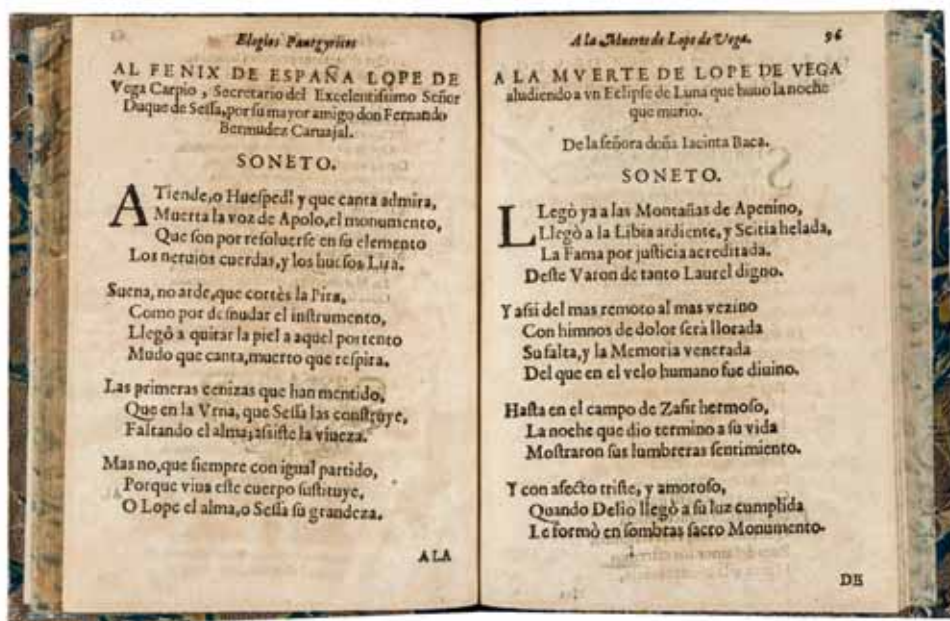 Elogios Panegyricos
AL FENIX DE ESPAÑA LOPE DE
Vega Carpio, Secretario del Excelentissimo Señor
Duque de Sessa, por su mayor amigo don Fernando
Bermudez Caruajal.
SONETO.
ATiende, o Huesped! y que canta admira,
Muerta la voz de Apolo, el monumento,
Que son por resoluerse en su elemento
Los neruios cuerdas, y los huesos Lira.
Suena, no arde, que cortès la Pira,
Como por desnudar el instrumento,
Llegò a quitar la piel a aquel portento
Mudo que canta, muerto que respira.
Las primeras cenizas que han mentido,
Que en la Vrna, que Sessa las construye,
Faltando el alma, assiste la viueza.
Mas no, que siempre con igual partido,
Porque viua este cuerpo sustituye,
O Lope el alma, o Sessa su grandeza.
A LA
A la Muerte de Lope de Vega. 96
A LA MVERTE DE LOPE DE VEGA
aludiendo a vn Eclipse de Luna que huuo la noche
que murio.
De la señora doña Iacinta Baca.
SONETO.
LLegò ya a las Montañas de Apenino,
Llegò a la Libia ardiente, y Scitia helada,
La Fama por justicia acreditada.
Deste Varon de tanto Laurel digno.
Y assi del mas remoto al mas vezino
Con himnos de dolor serà llorada
Su falta, y la Memoria venerada
Del que en el velo humano fue diuino.
Hasta en el campo de Zafir hermoso,
La noche que dio termino a su vida
Mostraron sus lumbreras sentimiento.
Y con afecto triste, y amoroso,
Quando Delio llegò a su luz cumplida
Le formò en sombras sacro Monumento.
DE